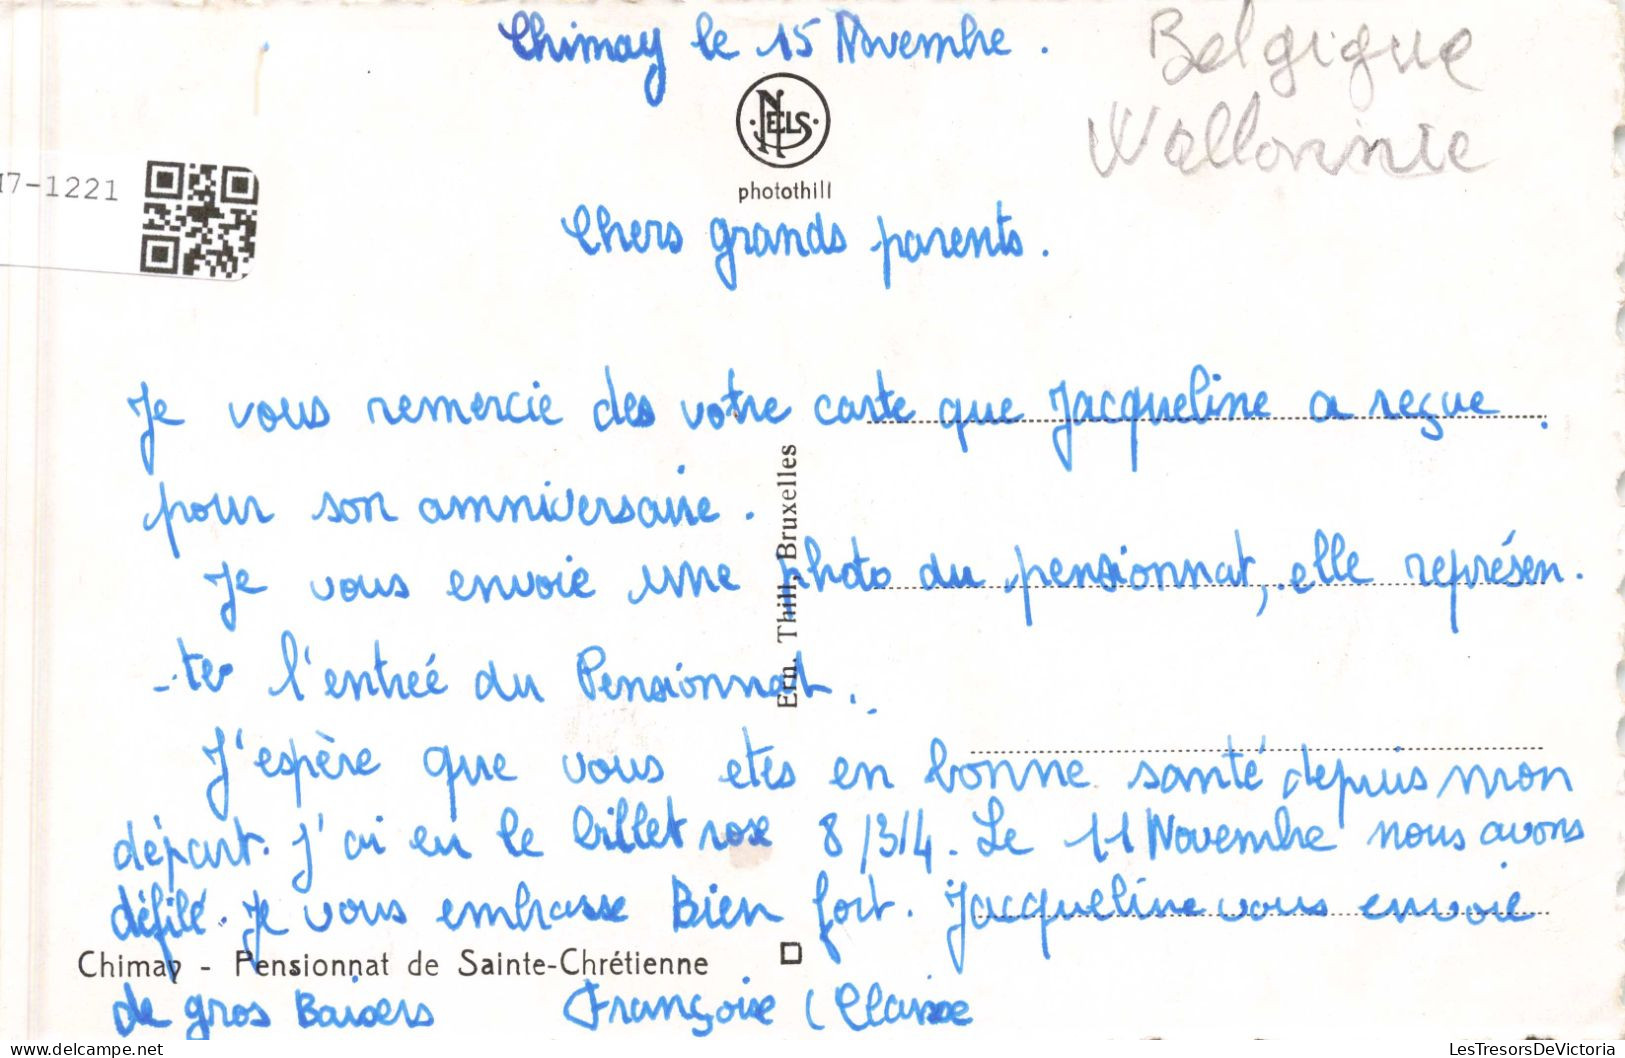 Chimay le 15 Novembre.
Belgique
Wallonnie
NELS
photothill
17-1221
Chers grands parents.
Je vous remercie des votre carte que Jacqueline a reçue.
pour son amniversaire.
Je vous envoie une photo du pensionnat, elle représen.
-ter l'entreé du Pensionnat.
J'espère que vous etes en bonne santé depuis mon
départ. j'ai eu le billet rose 8/3/4. Le 11 Novembre nous avons
défilé. Je vous embrasse Bien fort. Jacqueline vous envoie
Ern. Thill, Bruxelles
Chimay - Pensionnat de Sainte-Chrétienne
de gros Baisers Françoise
delcampe.net
LesTresorsDeVictoria